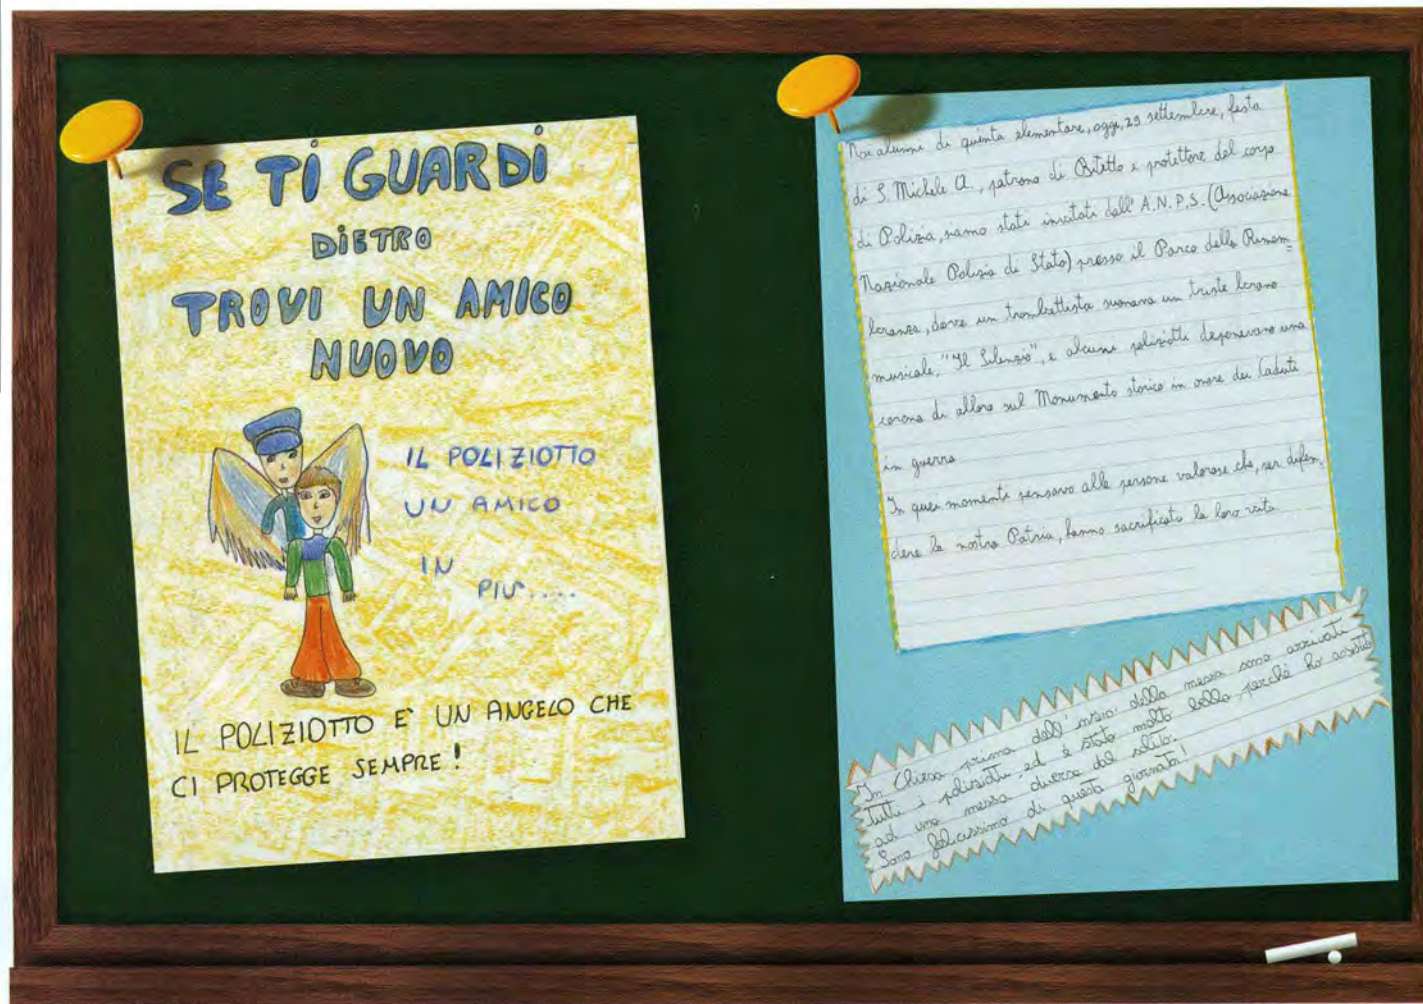 SE TI GUARDI
DIETRO
TROVI UN AMICO
NUOVO
IL POLIZIOTTO
UN AMICO
IN
PIU'....
IL POLIZIOTTO E' UN ANGELO CHE
CI PROTEGGE SEMPRE!
Noi alunni di quinta elementare, oggi, 29 settembre, festa
di S. Michele A., patrono di Bitetto e protettore del corpo
di Polizia, siamo stati invitati dall'A.N.P.S. (Associazione
Nazionale Polizia di Stato) presso il Parco della Rimem=
branza, dove un trombettista suonava un triste brano
musicale, "Il Silenzio", e alcuni poliziotti deponevano una
corona di alloro sul Monumento storico in onore dei Caduti
in guerra
In quei momenti pensavo alle persone valorose che, per difen,
dere la nostra Patria, hanno sacrificato la loro vita.
In Chiesa prima dell'inizio della messa sono arrivati
tutti i poliziotti, ed è stato molto bello, perchè ho assistito
ad una messa diversa dal solito.
Sono felicissimo di questa giornata!